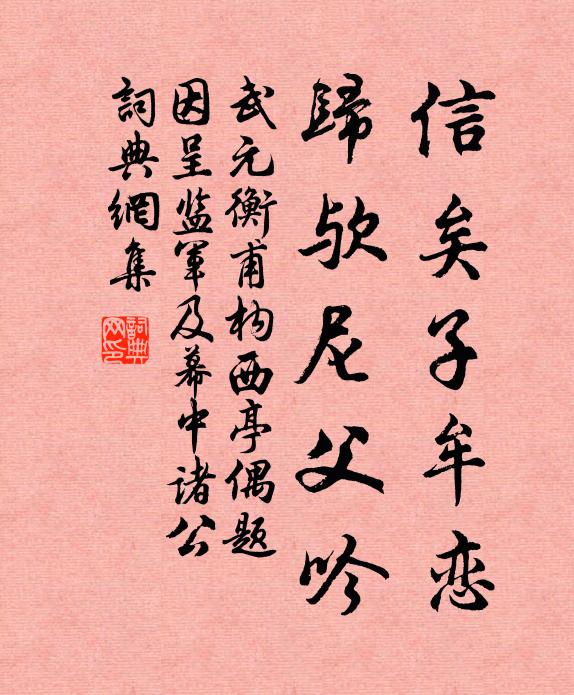 信矣子牟恋
歸欤尼父吟
武元衡甫构西亭偶题
因呈监軍及幕中诸公
詞典網集
詞典網印